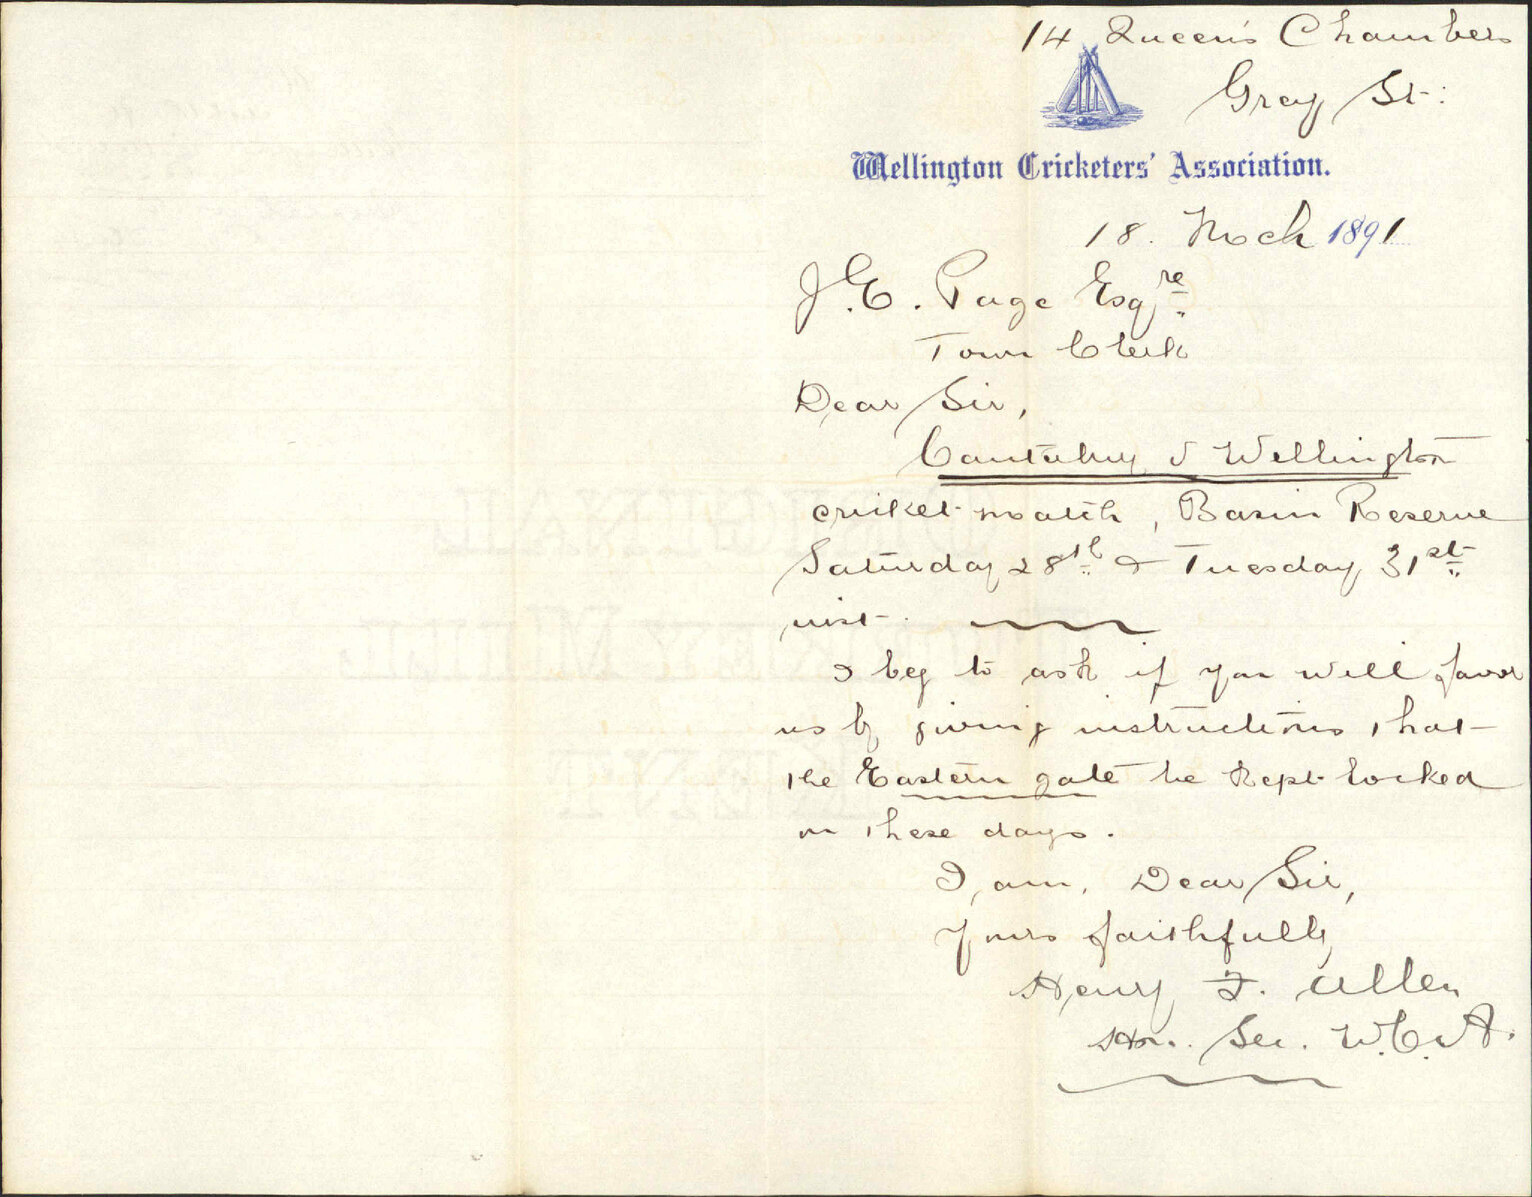 14 Queen's Chambers
Grey St.
Wellington Cricketers' Association.
18. Mch 1891
J.E. Page Esqre
Town Clerk
Dear Sir,
Cantabury v Wellington
cricket match, Basin Reserve
Saturday 28th & Tuesday 31st
inst.
I beg to ask if you will favor
us by giving instructions that
the Eastern gate be kept locked
on these days.
I am, Dear Sir,
Yours faithfully
Henry F. Allen
Hon. Sec. W.C.A.
ORIGINAL
TURKEY MILL
KENT